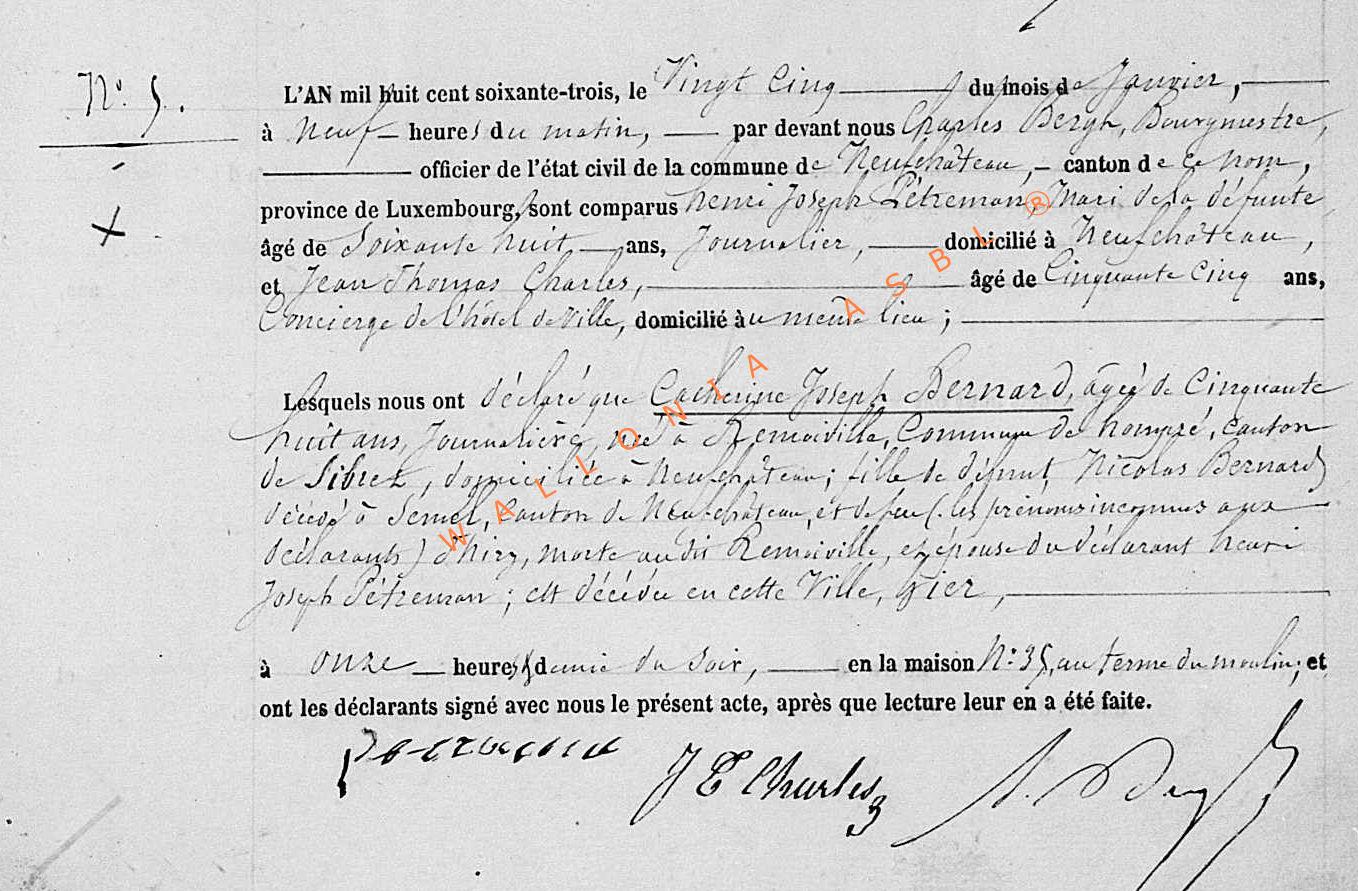 N° 5.
L'AN mil huit cent soixante-trois, le Vingt Cinq du mois de Janvier,
à Neuf heures du matin, par devant nous Charles Bergh, Bourgmestre,
officier de l'état civil de la commune de Neufchâteau, canton de ce nom,
province de Luxembourg, sont comparus henri Joseph Pétreman, Mari de la défunte
âgé de Soixante huit ans, Journalier, domicilié à Neufchâteau,
et Jean Thomas Charles, âgé de Cinquante Cinq ans,
Concierge de l'hôtel de Ville, domicilié au même lieu ;
Lesquels nous ont déclaré que Catherine Joseph Bernard, âgée de Cinquante
huit ans, Journalière, née à Remoiville, Commune de hompré, Canton
de Sibret, domiciliée à Neufchâteau ; fille de défunt Nicolas Bernard
décédé à Semel, Canton de Neufchâteau, et de feu (les prénoms inconnus aux
déclarants) Thiry, morte au dit Remoiville, et épouse du déclarant henri
Joseph Pétreman ; est décédée en cette Ville, hier,
à onze heures & demie du Soir, en la maison N° 35, au terme du moulin ; et
ont les déclarants signé avec nous le présent acte, après que lecture leur en a été faite.
J T Charles
WALLONIA ASBL ®